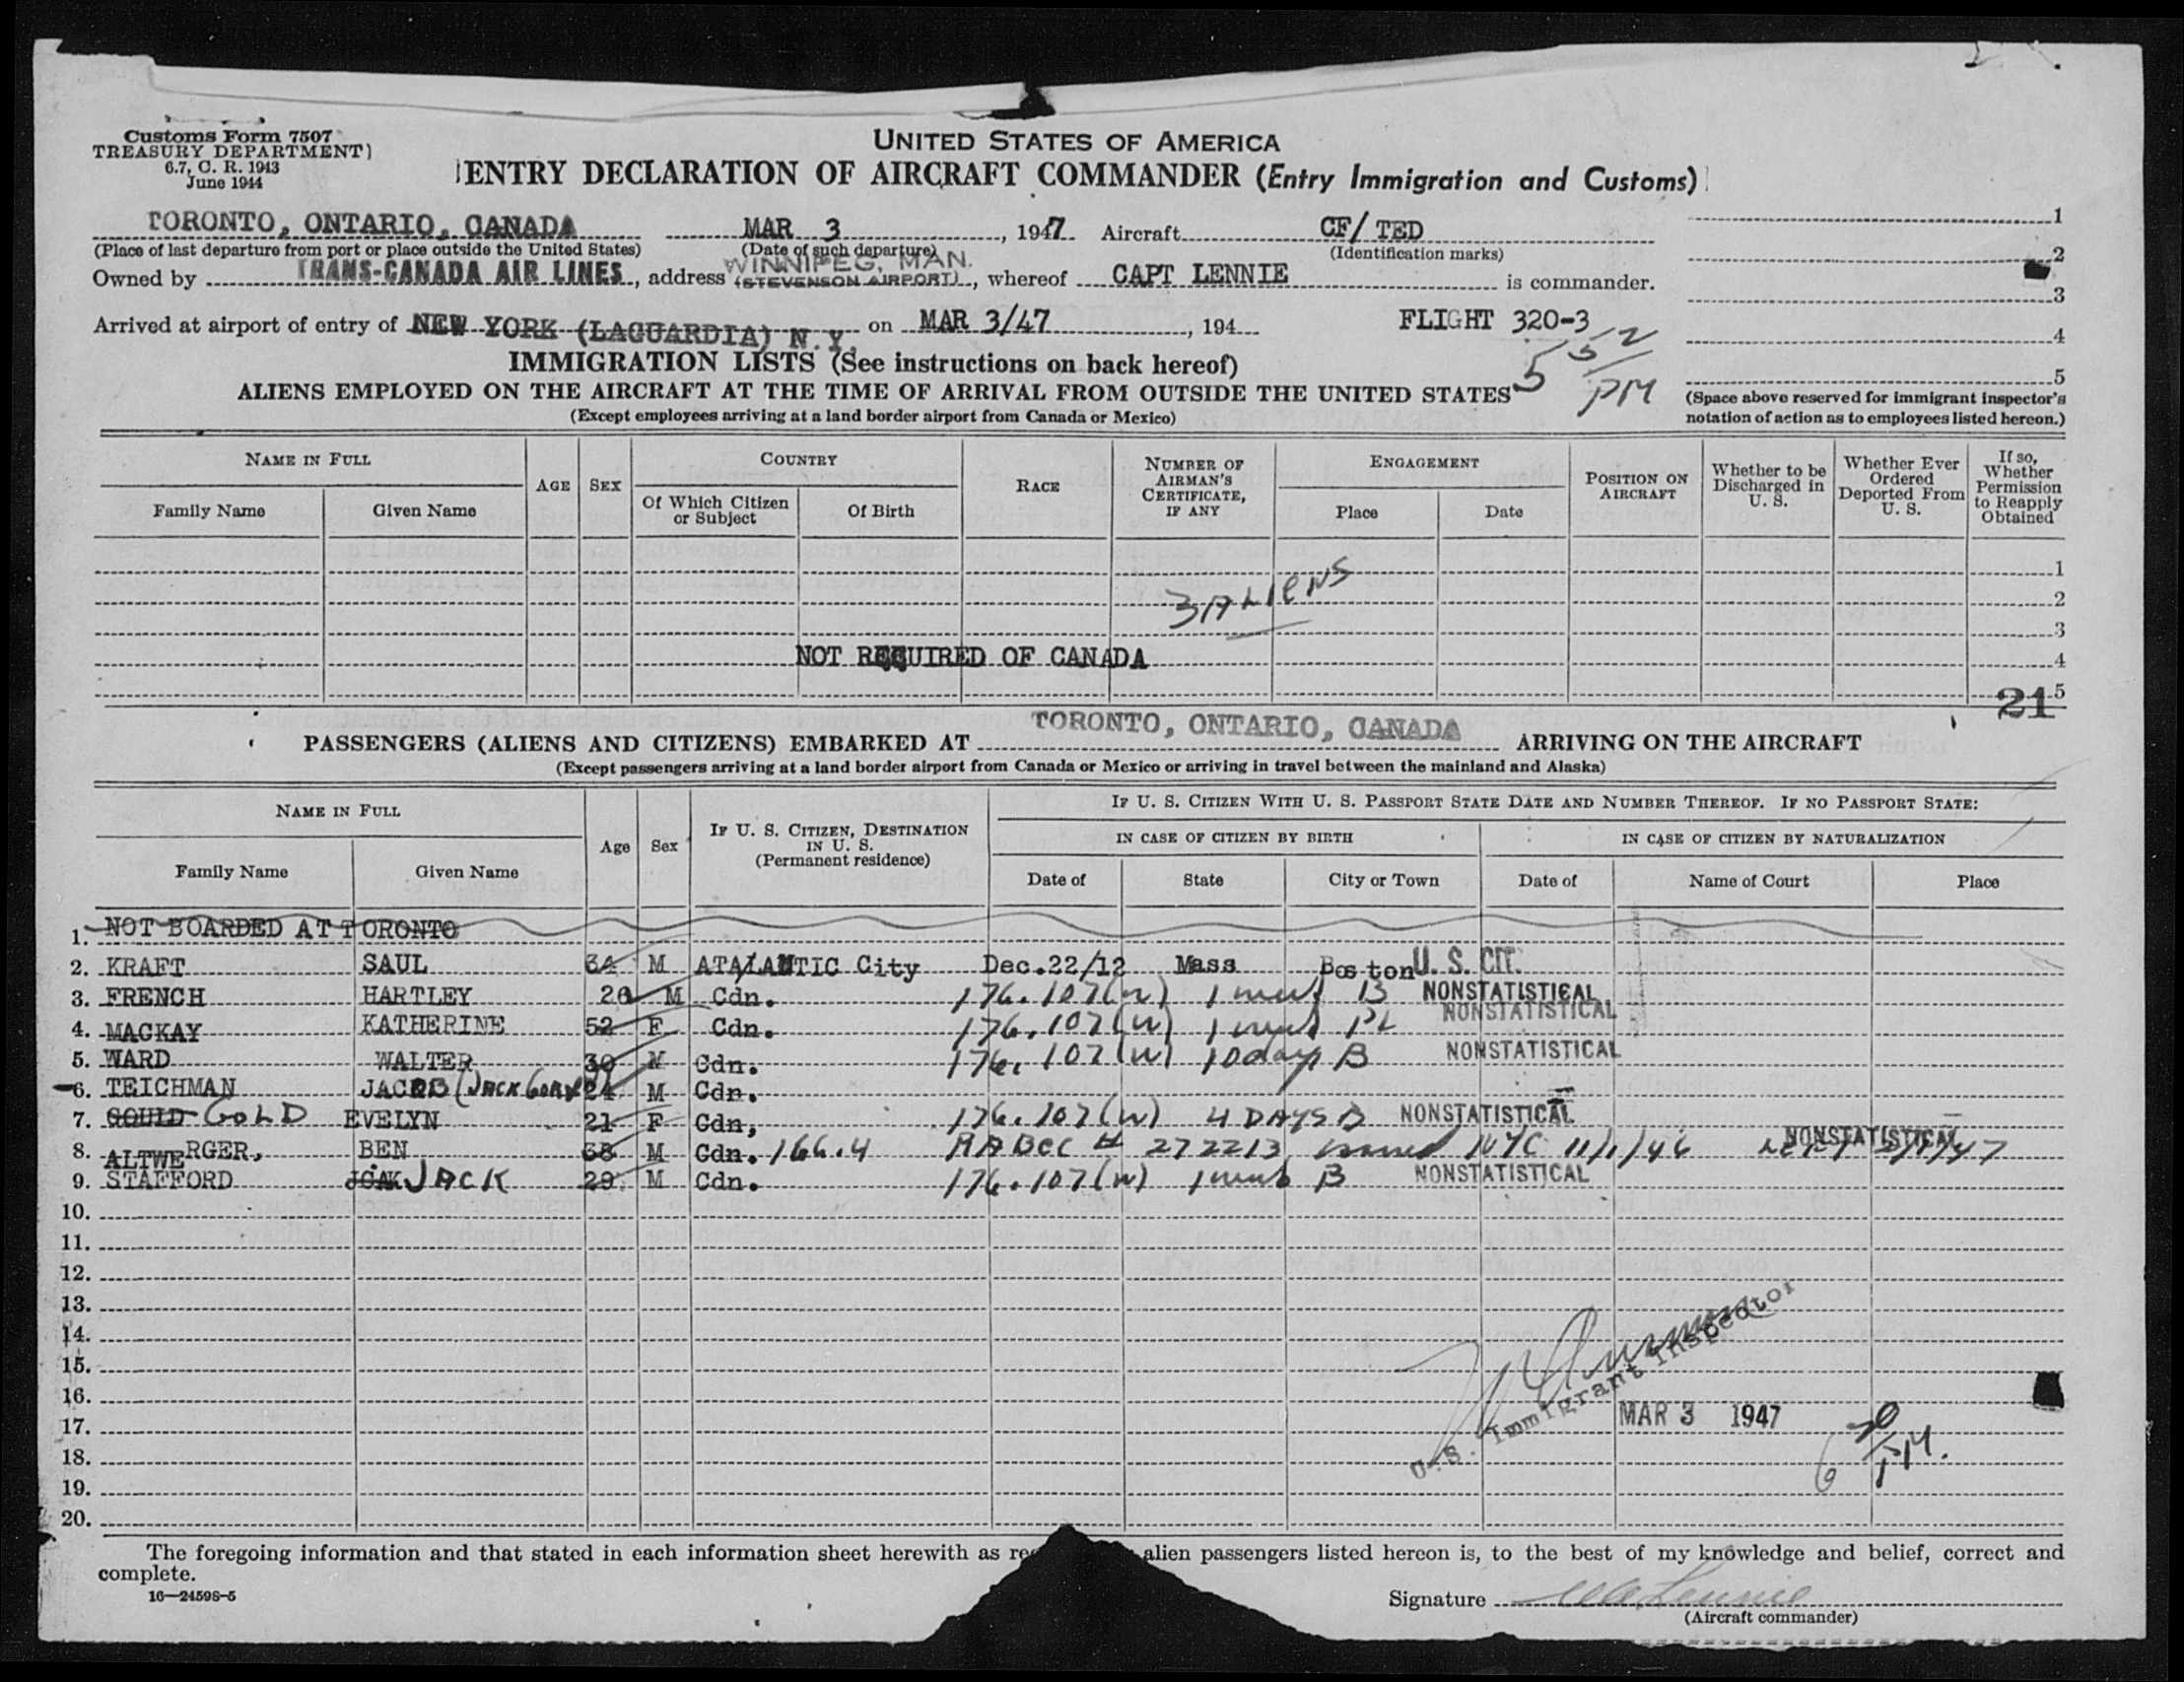 Customs Form 7507
TREASURY DEPARTMENT)
6.7, C. R. 1943
June 1944
UNITED STATES OF AMERICA
ENTRY DECLARATION OF AIRCRAFT COMMANDER (Entry Immigration and Customs)
TORONTO, ONTARIO, CANADA MAR 3, 1947 Aircraft CF/ TED 1
(Place of last departure from port or place outside the United States) (Date of such departure) (Identification marks) 2
WINNIPEG, MAN.
Owned by TRANS-CANADA AIR LINES, address (STEVENSON AIRPORT), whereof CAPT LENNIE is commander. 3
Arrived at airport of entry of NEW YORK (LAGUARDIA) N.Y. on MAR 3/47, 194 FLIGHT 320-3 4
IMMIGRATION LISTS (See instructions on back hereof) 5 52/PM 5
ALIENS EMPLOYED ON THE AIRCRAFT AT THE TIME OF ARRIVAL FROM OUTSIDE THE UNITED STATES
(Except employees arriving at a land border airport from Canada or Mexico)
(Space above reserved for immigrant inspector's
notation of action as to employees listed hereon.)
NAME IN FULL AGE SEX COUNTRY RACE NUMBER OF AIRMAN'S CERTIFICATE, IF ANY ENGAGEMENT POSITION ON AIRCRAFT Whether to be Discharged in U. S. Whether Ever Ordered Deported From U. S. If so, Whether Permission to Reapply Obtained
Family Name Given Name Of Which Citizen or Subject Of Birth Place Date
1
3 ALIENS 2
3
NOT REQUIRED OF CANADA 4
5
21
PASSENGERS (ALIENS AND CITIZENS) EMBARKED AT TORONTO, ONTARIO, CANADA ARRIVING ON THE AIRCRAFT
(Except passengers arriving at a land border airport from Canada or Mexico or arriving in travel between the mainland and Alaska)
NAME IN FULL Age Sex IF U. S. CITIZEN, DESTINATION IN U. S. (Permanent residence) IF U. S. CITIZEN WITH U. S. PASSPORT STATE DATE AND NUMBER THEREOF. IF NO PASSPORT STATE:
IN CASE OF CITIZEN BY BIRTH IN CASE OF CITIZEN BY NATURALIZATION
Family Name Given Name Date of State City or Town Date of Name of Court Place
1. NOT BOARDED AT TORONTO
2. KRAFT SAUL 34 M ATALANTIC City Dec.22/12 Mass Boston U. S. CIT.
3. FRENCH HARTLEY 26 M Cdn. 176.107(w) B NONSTATISTICAL
4. MACKAY KATHERINE 52 F Cdn. 176.107(w) PL NONSTATISTICAL
5. WARD WALTER 30 M Cdn. 176.107(w) 10 days B NONSTATISTICAL
6. TEICHMAN JACOB 24 M Cdn.
7. GOULD GOLD EVELYN 21 F Cdn, 176.107(w) 4 DAYS B NONSTATISTICAL
8. ALTWERGER, BEN 38 M Cdn. 166.4 272213 issued NYC 11/1/46 NONSTATISTICAL
9. STAFFORD JACK 29 M Cdn. 176.107(w) B NONSTATISTICAL
10.
11.
12.
13.
14.
15.
16.
17.
18.
19.
20.
U.S. Immigrant Inspector
MAR 3 1947
6 30/PM.
The foregoing information and that stated in each information sheet herewith as alien passengers listed hereon is, to the best of my knowledge and belief, correct and
complete.
16—24598-5
Signature
(Aircraft commander)